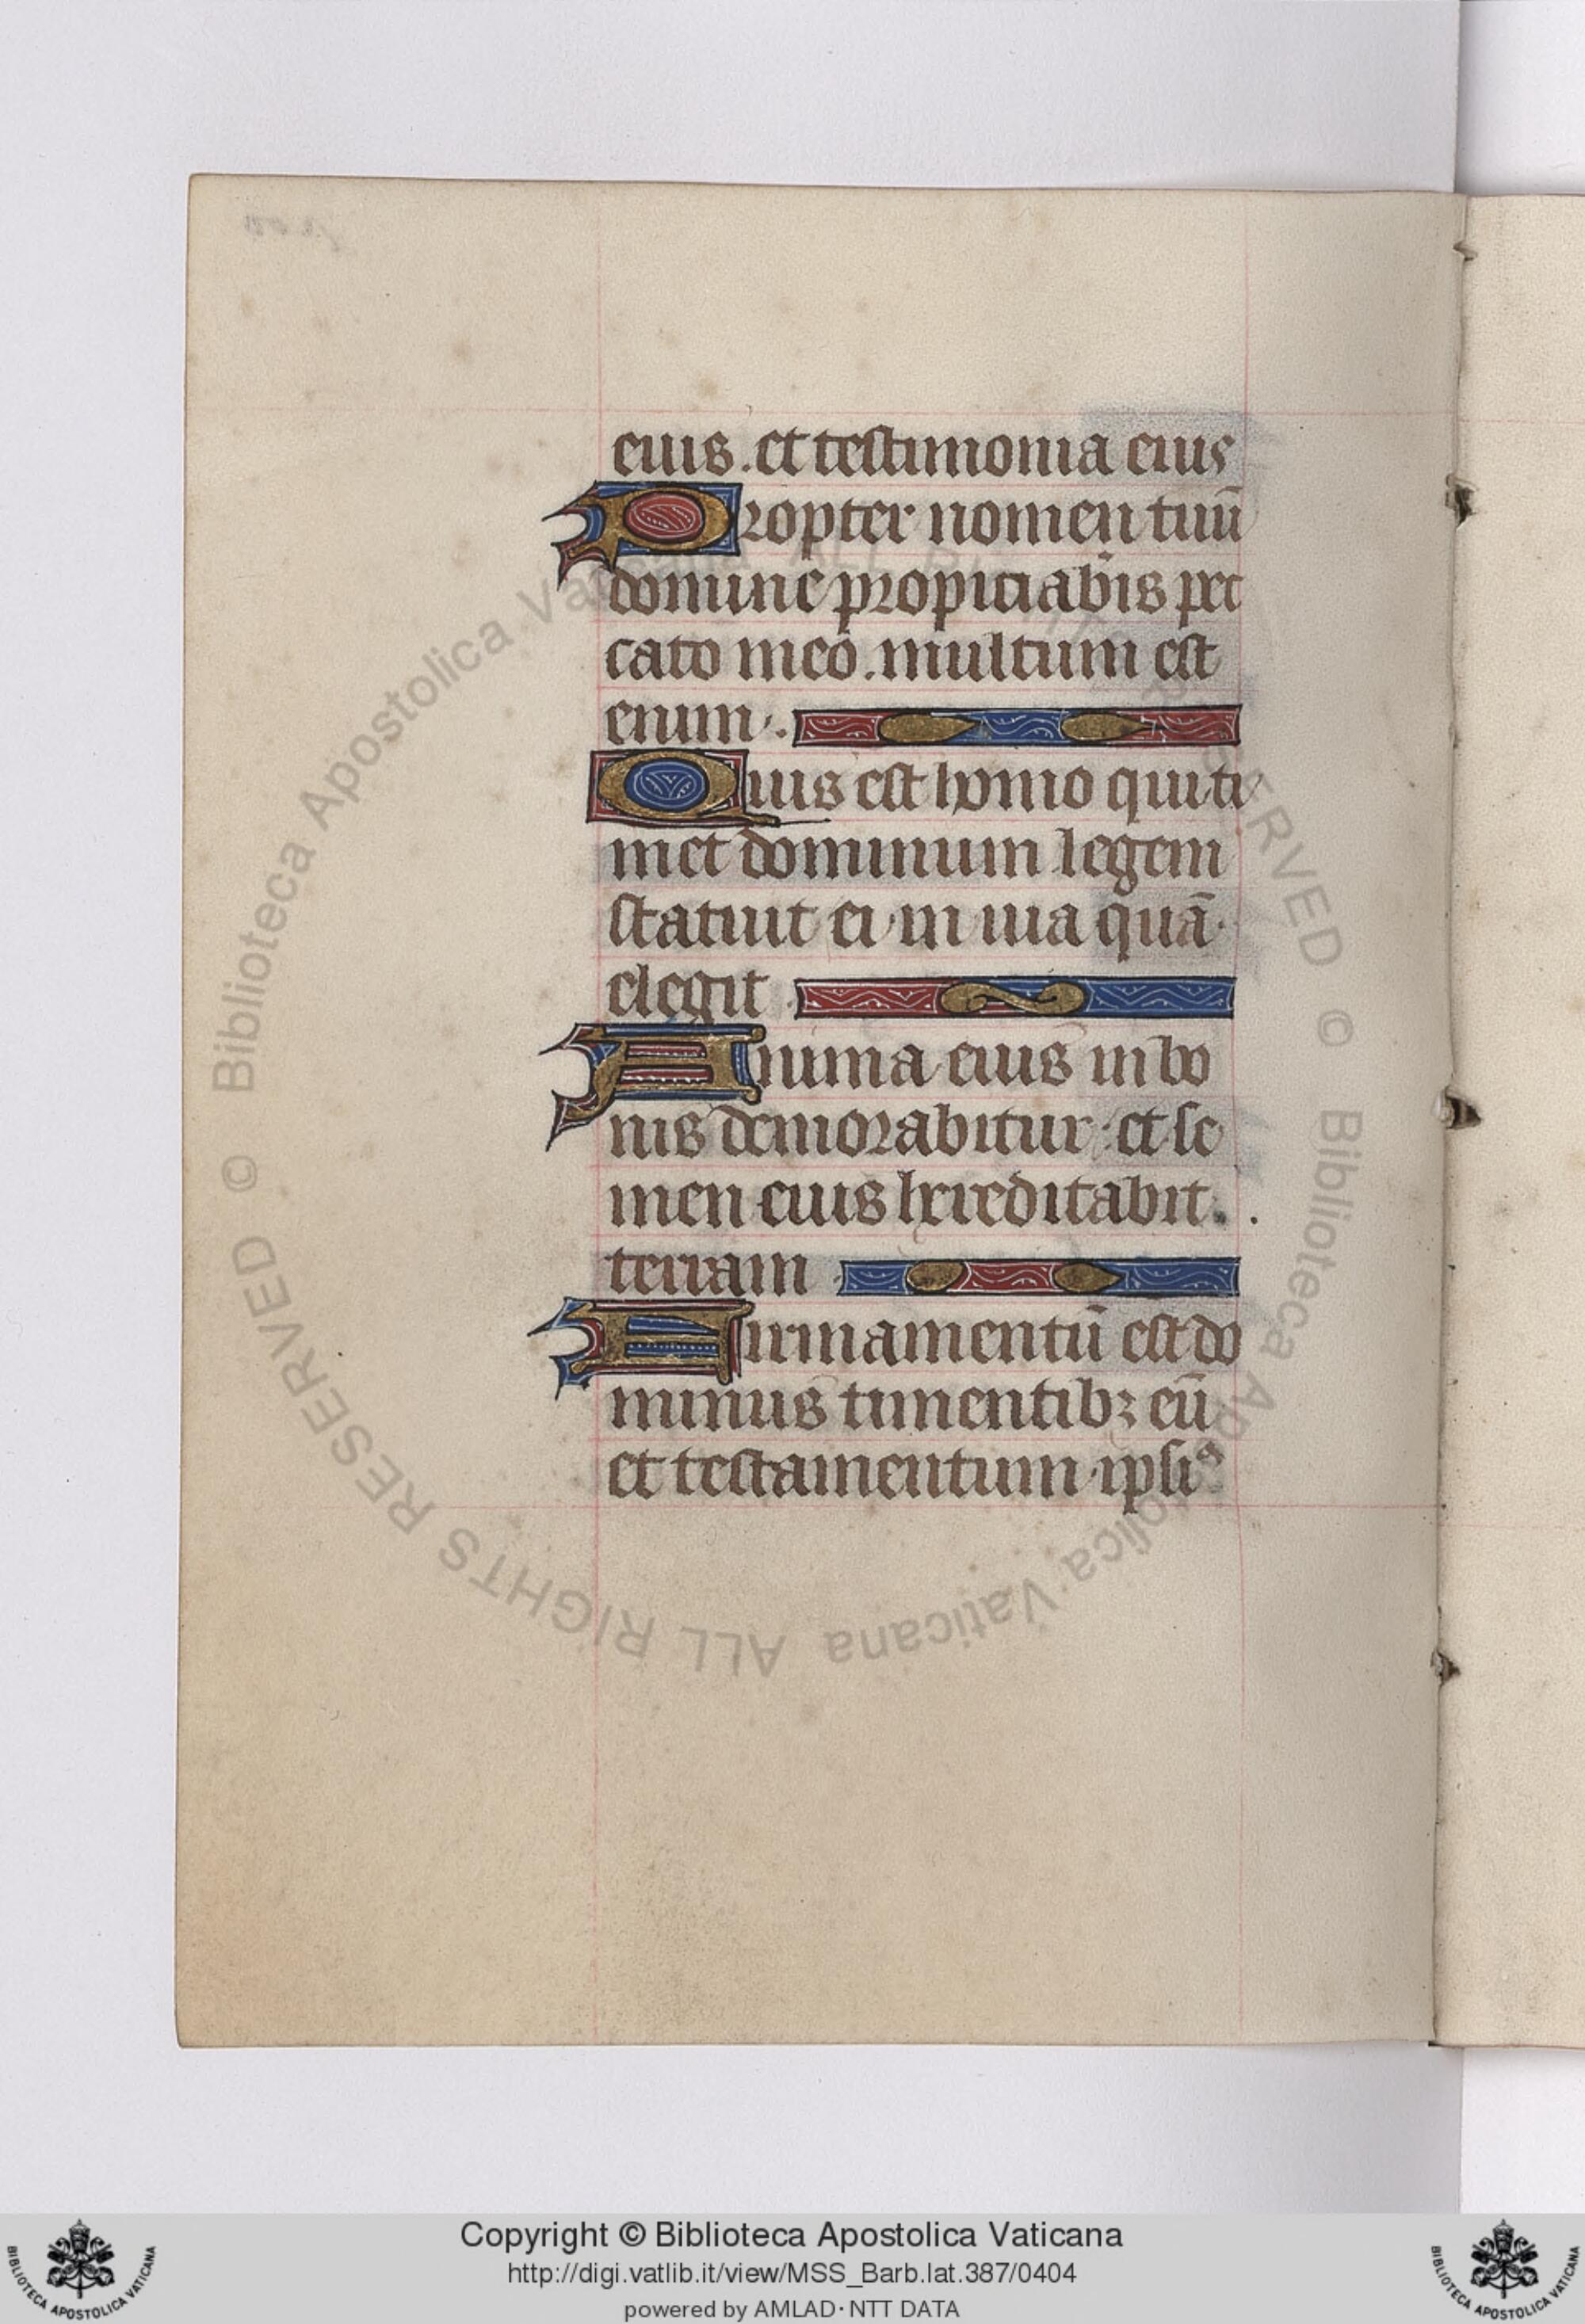 eius. et testimonia eius
Propter nomen tuū
domine propiciabis pec
cato meo. multum est
enim.
Quis est homo qui ti
met dominum legem
statuit ei in uia quā
elegit
Anima eius in bo
nis demorabitur et se
men eius hereditabit.
terram
Airmamentū est do
minus timentibꝫ eū
et testamentum ipsiꝰ
© Biblioteca Apostolica Vaticana ALL RIGHTS RESERVED © Biblioteca Apostolica Vaticana ALL RIGHTS RESERVED
BIBLIOTECA APOSTOLICA VATICANA
Copyright © Biblioteca Apostolica Vaticana
http://digi.vatlib.it/view/MSS_Barb.lat.387/0404
powered by AMLAD·NTT DATA
BIBLIOTECA APOSTOLICA VATICANA